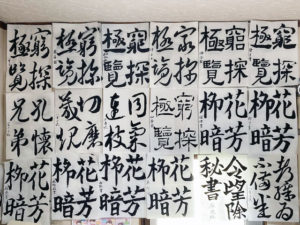 窮探
極覽
窮探
極覽
窮探
極覽
窮探
極覽
窮探
極覽
窮探
極覽
花芳
柳暗
花芳
柳暗
窮探
極覽
同氣
連枝
切磨
箴規
孔懷
兄弟
令望除
秘書
花芳
柳暗
花芳
柳暗
花芳
柳暗
花芳
柳暗